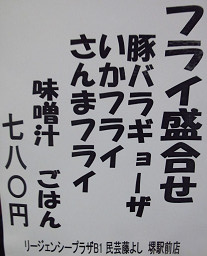 フライ盛合せ
豚バラギョーザ
いかフライ
さんまフライ
味噌汁 ごはん
七八〇円
リージェンシープラザB1 民芸藤よし 堺駅前店